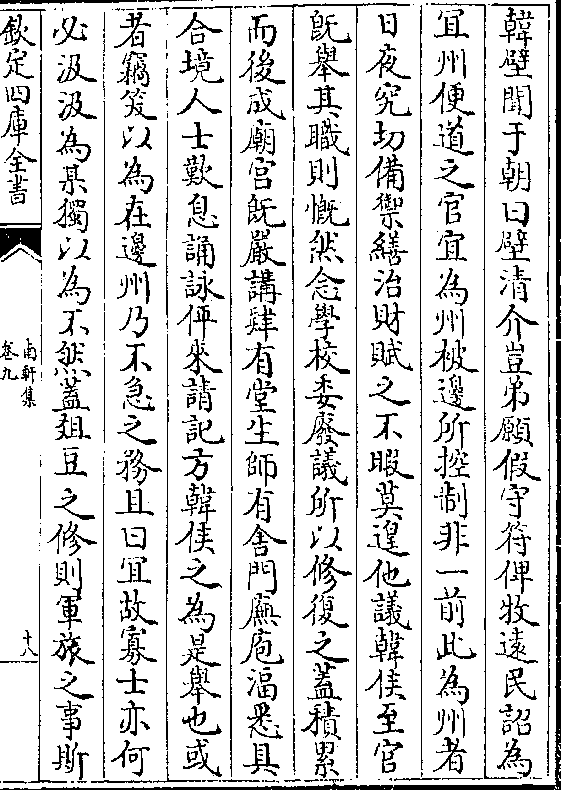 韓璧聞于朝曰璧清介豈弟願假守符俾牧遠民詔為
宜州便道之官宜為州被邊所控制非一前此為州者
日夜究切備禦繕治財賦之不暇莫遑他議韓侯至官
既舉其職則慨然念學校委廢議所以修復之蓋積累
而後成廟宫既嚴講肄有堂生師有舍門廡庖湢悉具
合境人士歎息誦詠伻來請記方韓侯之為是舉也或
者竊笑以為在邊州乃不急之務且曰宜故寡士亦何
必汲汲為某獨以為不然蓋俎豆之修則軍旅之事斯
欽定四庫全書
南軒集
卷九
十八